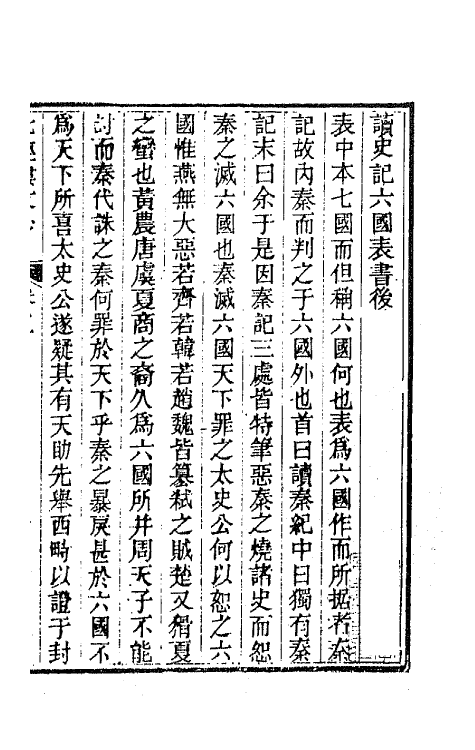 讀史記六國表書後
表中本七國而但稱六國何也表爲六國作而所据者秦
記故內秦而判之于六國外也首曰讀秦紀中曰獨有秦
記末曰余于是因秦記三處皆特筆惡秦之燒諸史而怨
秦之滅六國也秦滅六國天下罪之太史公何以恕之六
國惟燕無大惡若齊若韓若趙魏皆篡弑之賊楚又猾夏
之蠻也黃農唐虞夏商之裔久爲六國所并周天子不能
討而秦代誅之秦何罪於天下乎秦之暴戾甚於六國不
爲天下所喜太史公遂疑其有天助先舉西畤以證于封